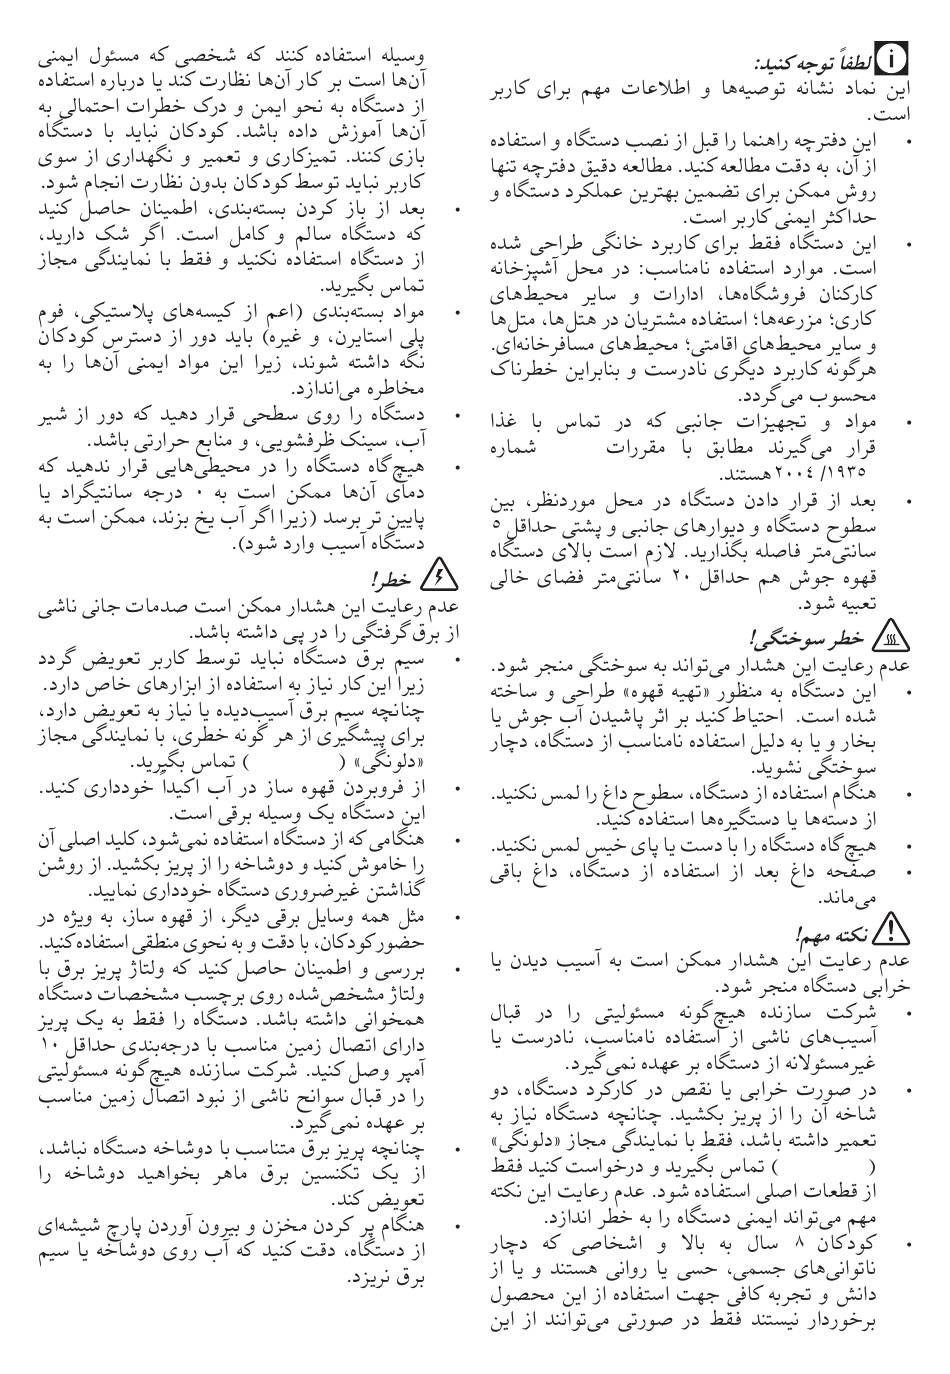 لطفاً توجه کنید:
این نماد نشانه توصیه‌ها و اطلاعات مهم برای کاربر
است.
• این دفترچه راهنما را قبل از نصب دستگاه و استفاده
از آن، به دقت مطالعه کنید. مطالعه دقیق دفترچه تنها
روش ممکن برای تضمین بهترین عملکرد دستگاه و
حداکثر ایمنی کاربر است.
• این دستگاه فقط برای کاربرد خانگی طراحی شده
است. موارد استفاده نامناسب: در محل آشپزخانه
کارکنان فروشگاه‌ها، ادارات و سایر محیط‌های
کاری؛ مزرعه‌ها؛ استفاده مشتریان در هتل‌ها، متل‌ها
و سایر محیط‌های اقامتی؛ محیط‌های مسافرخانه‌ای.
هرگونه کاربرد دیگری نادرست و بنابراین خطرناک
محسوب می‌گردد.
• مواد و تجهیزات جانبی که در تماس با غذا
قرار می‌گیرند مطابق با مقررات شماره
۱۹۳۵/ ۲۰۰٤ هستند.
• بعد از قرار دادن دستگاه در محل موردنظر، بین
سطوح دستگاه و دیوارهای جانبی و پشتی حداقل ٥
سانتی‌متر فاصله بگذارید. لازم است بالای دستگاه
قهوه جوش هم حداقل ۲۰ سانتی‌متر فضای خالی
تعبیه شود.
خطر سوختگی!
عدم رعایت این هشدار می‌تواند به سوختگی منجر شود.
• این دستگاه به منظور «تهیه قهوه» طراحی و ساخته
شده است. احتیاط کنید بر اثر پاشیدن آب جوش یا
بخار و یا به دلیل استفاده نامناسب از دستگاه، دچار
سوختگی نشوید.
• هنگام استفاده از دستگاه، سطوح داغ را لمس نکنید.
از دسته‌ها یا دستگیره‌ها استفاده کنید.
• هیچ‌گاه دستگاه را با دست یا پای خیس لمس نکنید.
• صفحه داغ بعد از استفاده از دستگاه، داغ باقی
می‌ماند.
نکته مهم!
عدم رعایت این هشدار ممکن است به آسیب دیدن یا
خرابی دستگاه منجر شود.
• شرکت سازنده هیچ‌گونه مسئولیتی را در قبال
آسیب‌های ناشی از استفاده نامناسب، نادرست یا
غیرمسئولانه از دستگاه بر عهده نمی‌گیرد.
• در صورت خرابی یا نقص در کارکرد دستگاه، دو
شاخه آن را از پریز بکشید. چنانچه دستگاه نیاز به
تعمیر داشته باشد، فقط با نمایندگی مجاز «دلونگی»
( ) تماس بگیرید و درخواست کنید فقط
از قطعات اصلی استفاده شود. عدم رعایت این نکته
مهم می‌تواند ایمنی دستگاه را به خطر اندازد.
• کودکان ۸ سال به بالا و اشخاصی که دچار
ناتوانی‌های جسمی، حسی یا روانی هستند و یا از
دانش و تجربه کافی جهت استفاده از این محصول
برخوردار نیستند فقط در صورتی می‌توانند از این
وسیله استفاده کنند که شخصی که مسئول ایمنی
آن‌ها است بر کار آن‌ها نظارت کند یا درباره استفاده
از دستگاه به نحو ایمن و درک خطرات احتمالی به
آن‌ها آموزش داده باشد. کودکان نباید با دستگاه
بازی کنند. تمیزکاری و تعمیر و نگهداری از سوی
کاربر نباید توسط کودکان بدون نظارت انجام شود.
• بعد از باز کردن بسته‌بندی، اطمینان حاصل کنید
که دستگاه سالم و کامل است. اگر شک دارید،
از دستگاه استفاده نکنید و فقط با نمایندگی مجاز
تماس بگیرید.
• مواد بسته‌بندی (اعم از کیسه‌های پلاستیکی، فوم
پلی استایرن، و غیره) باید دور از دسترس کودکان
نگه داشته شوند، زیرا این مواد ایمنی آن‌ها را به
مخاطره می‌اندازد.
• دستگاه را روی سطحی قرار دهید که دور از شیر
آب، سینک ظرفشویی، و منابع حرارتی باشد.
• هیچ‌گاه دستگاه را در محیطی‌هایی قرار ندهید که
دمای آن‌ها ممکن است به ۰ درجه سانتیگراد یا
پایین تر برسد (زیرا اگر آب یخ بزند، ممکن است به
دستگاه آسیب وارد شود).
خطر!
عدم رعایت این هشدار ممکن است صدمات جانی ناشی
از برق‌گرفتگی را در پی داشته باشد.
• سیم برق دستگاه نباید توسط کاربر تعویض گردد
زیرا این کار نیاز به استفاده از ابزارهای خاص دارد.
چنانچه سیم برق آسیب‌دیده یا نیاز به تعویض دارد،
برای پیشگیری از هر گونه خطری، با نمایندگی مجاز
«دلونگی» ( ) تماس بگیرید.
• از فروبردن قهوه ساز در آب اکیداً خودداری کنید.
این دستگاه یک وسیله برقی است.
• هنگامی که از دستگاه استفاده نمی‌شود، کلید اصلی آن
را خاموش کنید و دوشاخه را از پریز بکشید. از روشن
گذاشتن غیرضروری دستگاه خودداری نمایید.
• مثل همه وسایل برقی دیگر، از قهوه ساز، به ویژه در
حضور کودکان، با دقت و به نحوی منطقی استفاده کنید.
• بررسی و اطمینان حاصل کنید که ولتاژ پریز برق با
ولتاژ مشخص‌شده روی برچسب مشخصات دستگاه
همخوانی داشته باشد. دستگاه را فقط به یک پریز
دارای اتصال زمین مناسب با درجه‌بندی حداقل ۱۰
آمپر وصل کنید. شرکت سازنده هیچ‌گونه مسئولیتی
را در قبال سوانح ناشی از نبود اتصال زمین مناسب
بر عهده نمی‌گیرد.
• چنانچه پریز برق متناسب با دوشاخه دستگاه نباشد،
از یک تکنسین برق ماهر بخواهید دوشاخه را
تعویض کند.
• هنگام پر کردن مخزن و بیرون آوردن پارچ شیشه‌ای
از دستگاه، دقت کنید که آب روی دوشاخه یا سیم
برق نریزد.